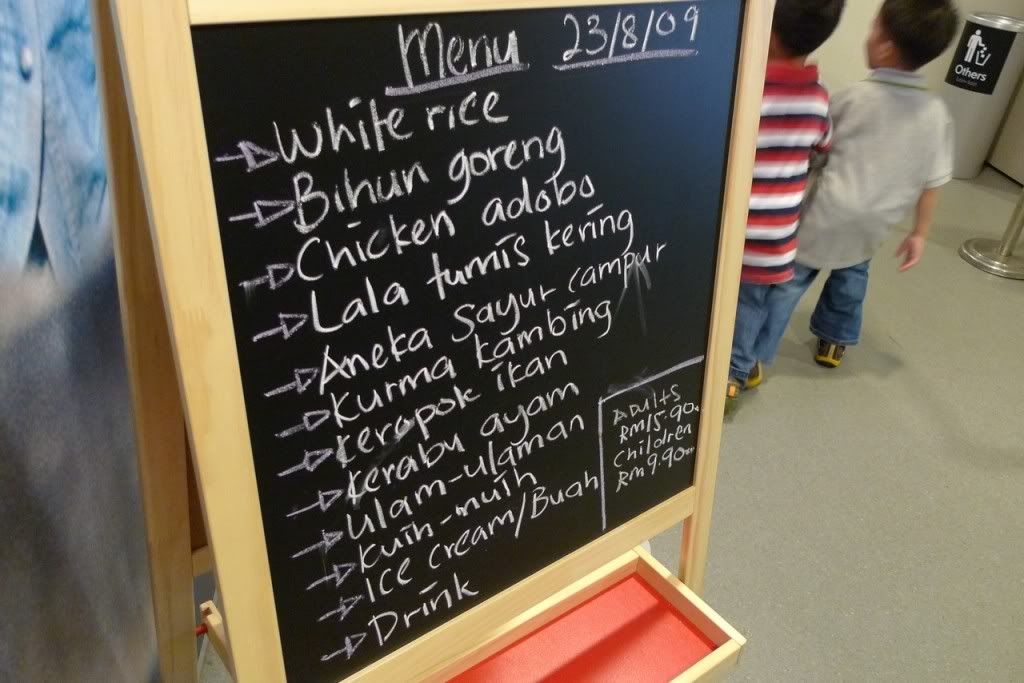 Menu 23/8/09
White rice
Bihun goreng
Chicken adobo
Lala tumis kering
Aneka Sayur campur
Kurma kambing
Keropok ikan
Kerabu ayam
Ulam-ulaman
Kuih-muih
Ice cream/Buah
Drink
Adults
RM15.90
Children
RM9.90
Others